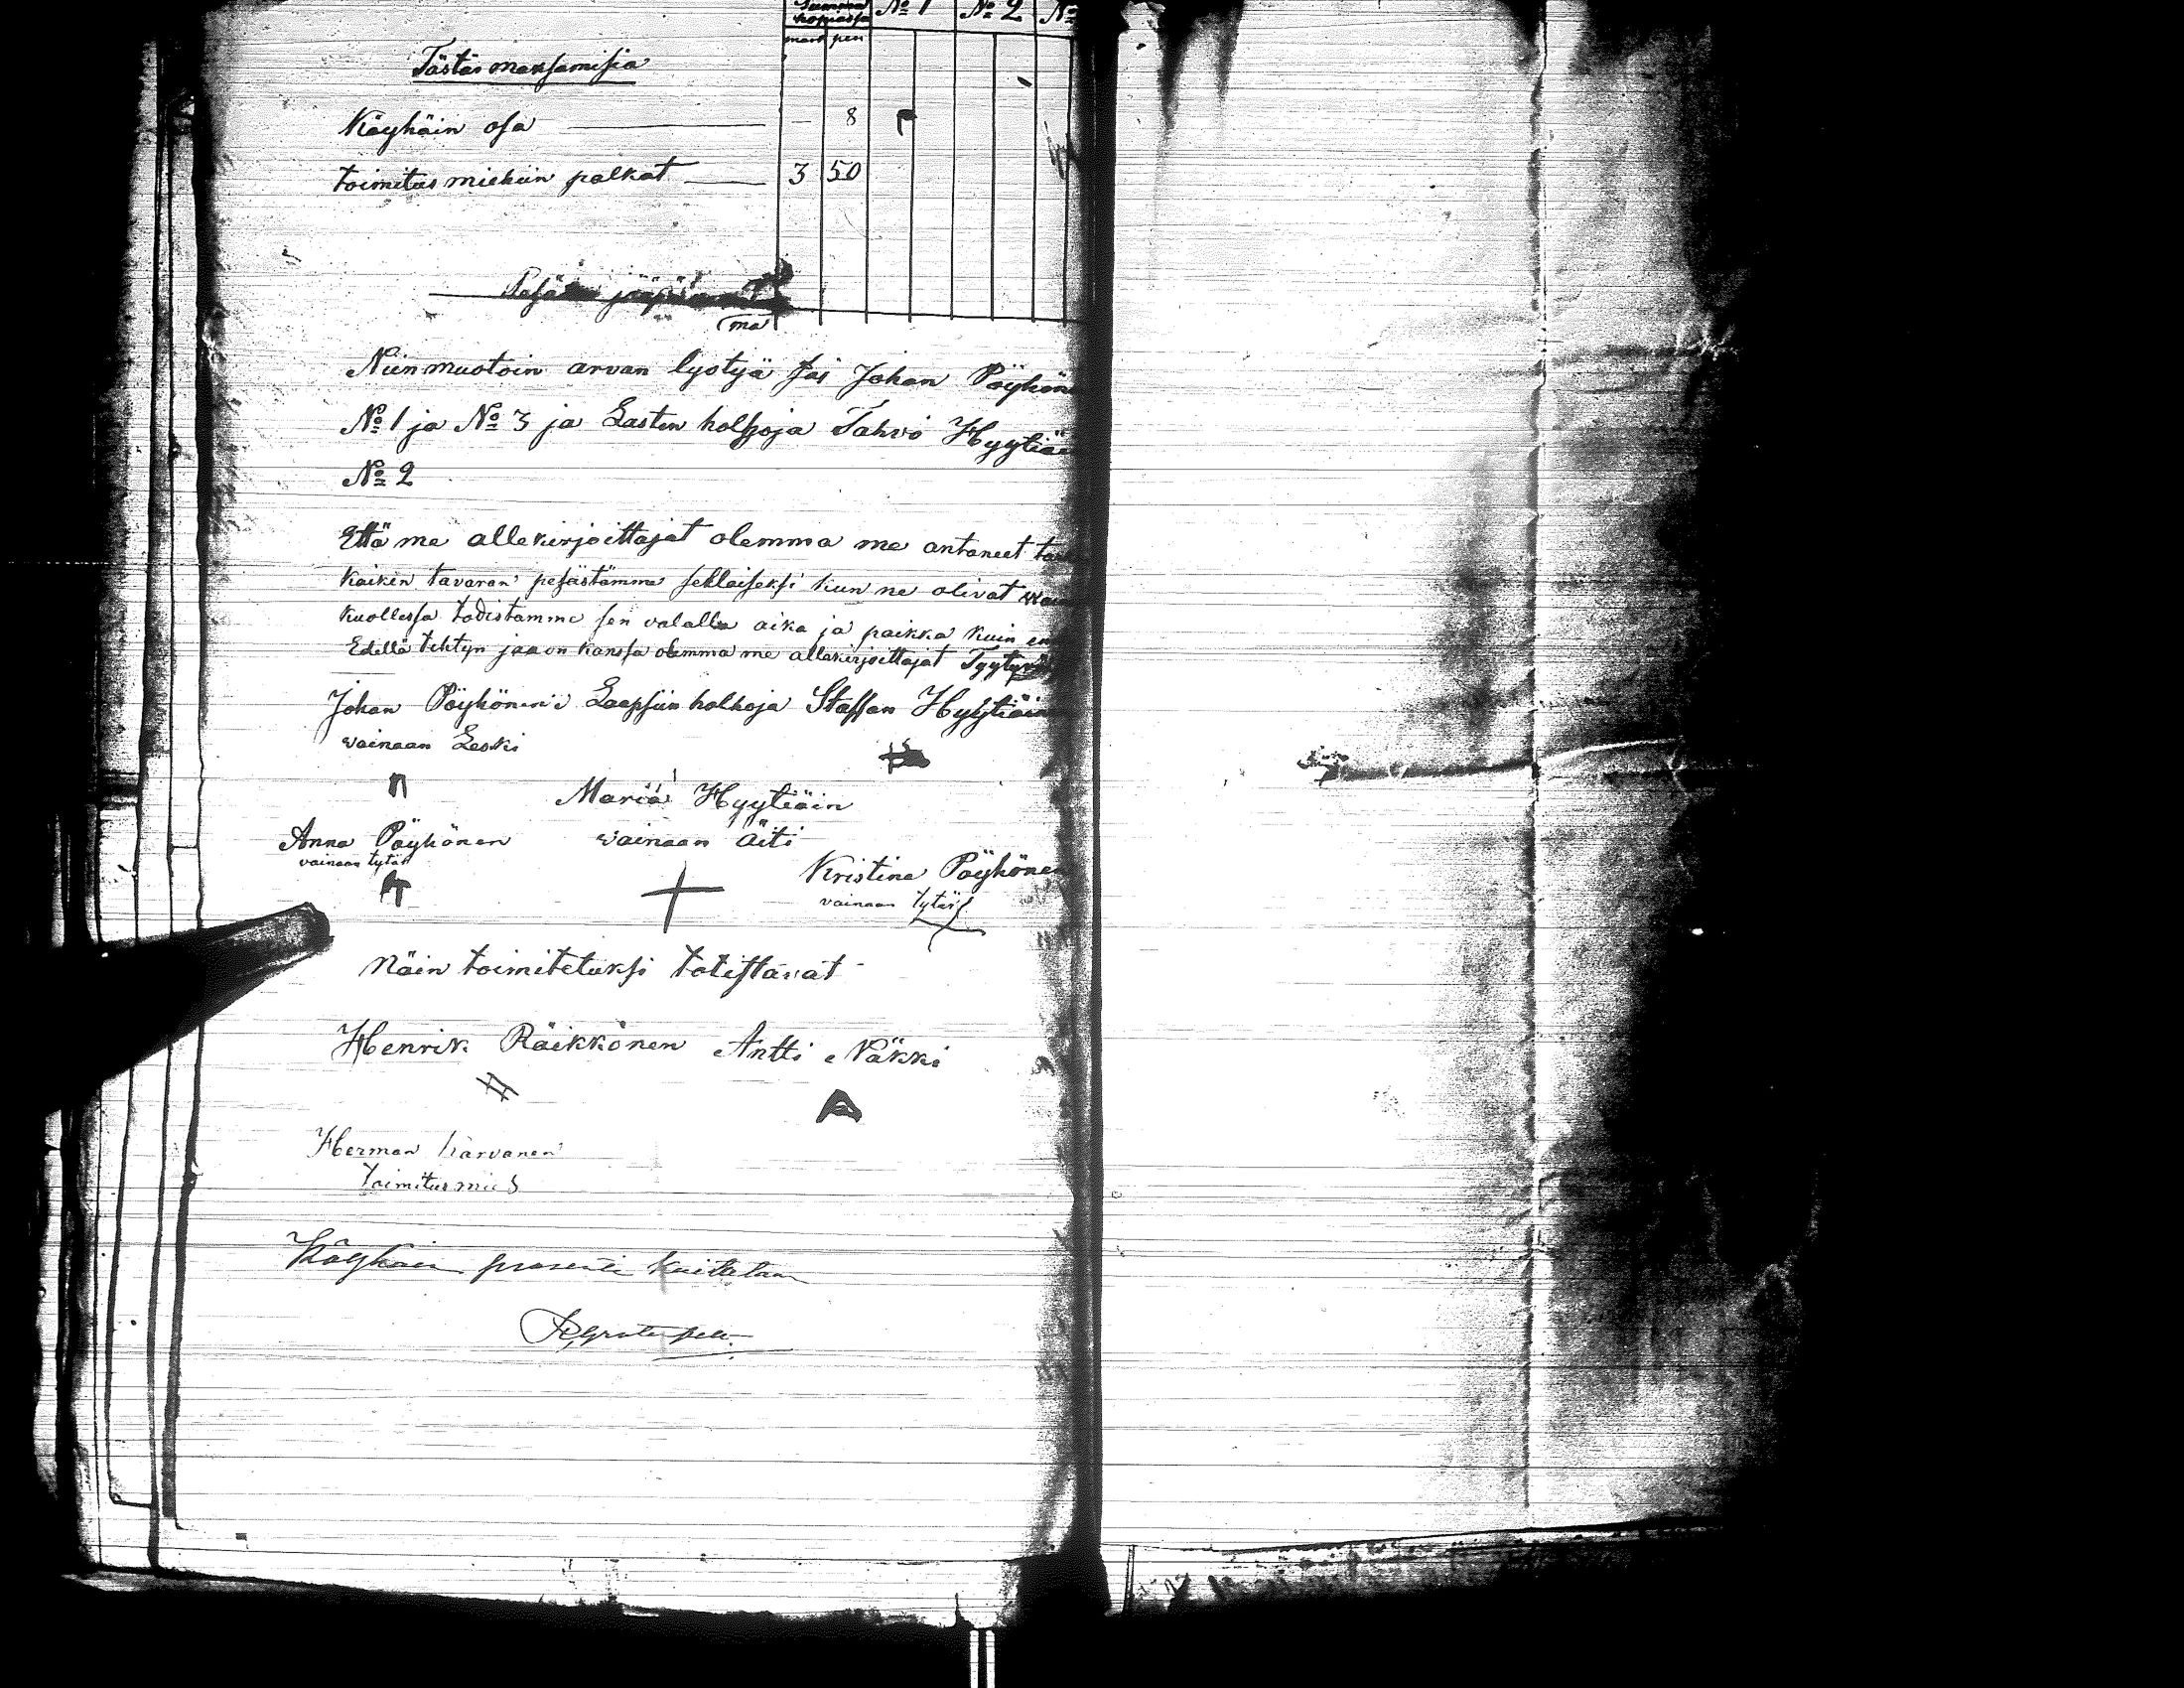 Summa N:o 1 N:o 2 N:o
hopiassa
mark pen
Tästä maksamisia
Köyhäin osa — 8
toimitus miehiin palkat 3 50
ma
Niinmuotoin arvan lyötyä sai Johan Pöyhöne
N:o 1 ja N:o 3 ja Lasten holhoja Tahvo Hyytiäi
N:o 2
Että me allekirjoittajat olemma me antaneet
Kaiken tavaran pesästämme sellaiseksi kun ne olivat
kuollessa todistamme sen valalla aika ja paikka kuin
Edellä tehtyn jaaon kanssa olemma me allakirjoittajat Tyytyv
Johan Pöyhönen Laapsiin holhoja Staffan Hyytiäine
vainaan Leski
Maria Hyytiäin
Anna Pöyhönen vainaan Äiti
vainaan tytär
Kristina Pöyhönen
vainaan tytär
Näin toimitetuksi totistavat
Henrik Räikkönen Antti Näkki
A
Herman Karvanen
toimitusmies
Köyhäin prosenti kuitataan